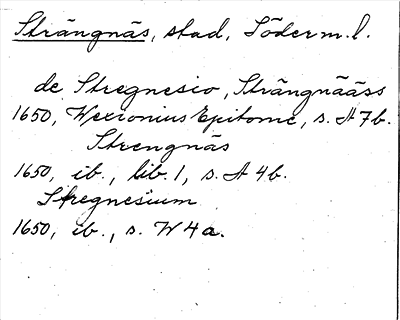 Strängnäs, stad, Söderm.l.
de Stregnesio, Strängnääss
1650, Wexionius Epitome, s. A7b.
Strengnäs
1650, ib., lib. 1, s. A4b.
Stregnesium
1650, ib., s. W4a.